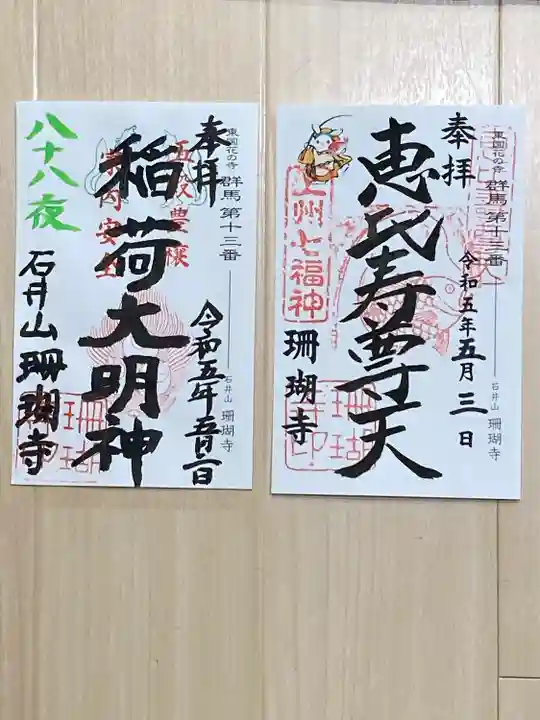 奉拝
東国花の寺 群馬第十三番
石井山 珊瑚寺
恵比寿尊天
令和五年五月三日
上州七福神
珊瑚寺
珊瑚
奉拝
東国花の寺 群馬第十三番
石井山 珊瑚寺
五穀豊穣
稲荷大明神
八十八夜
石井山珊瑚寺
珊瑚